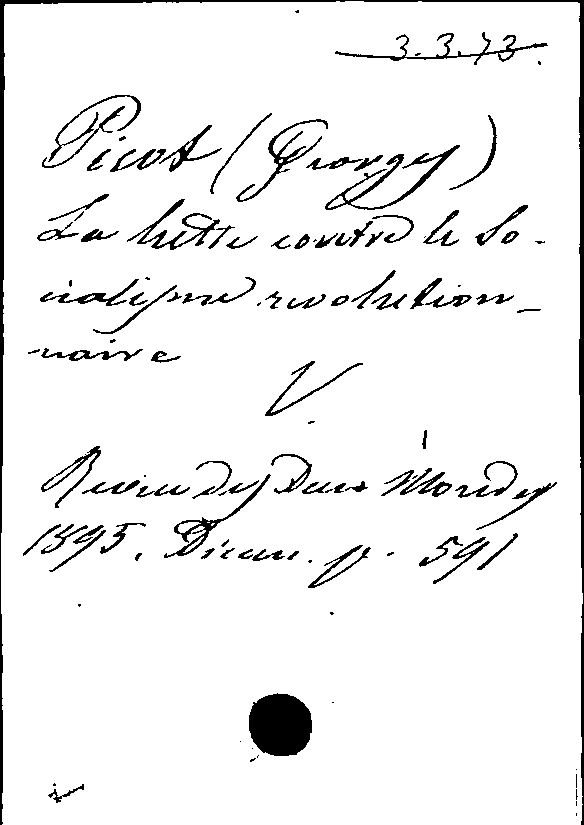 3.3.73.
Picot (Georges)
La lutte contre le So-
cialisme revolution-
naire
V
Revue des Deux Mondes
1895. Décem. p. 591